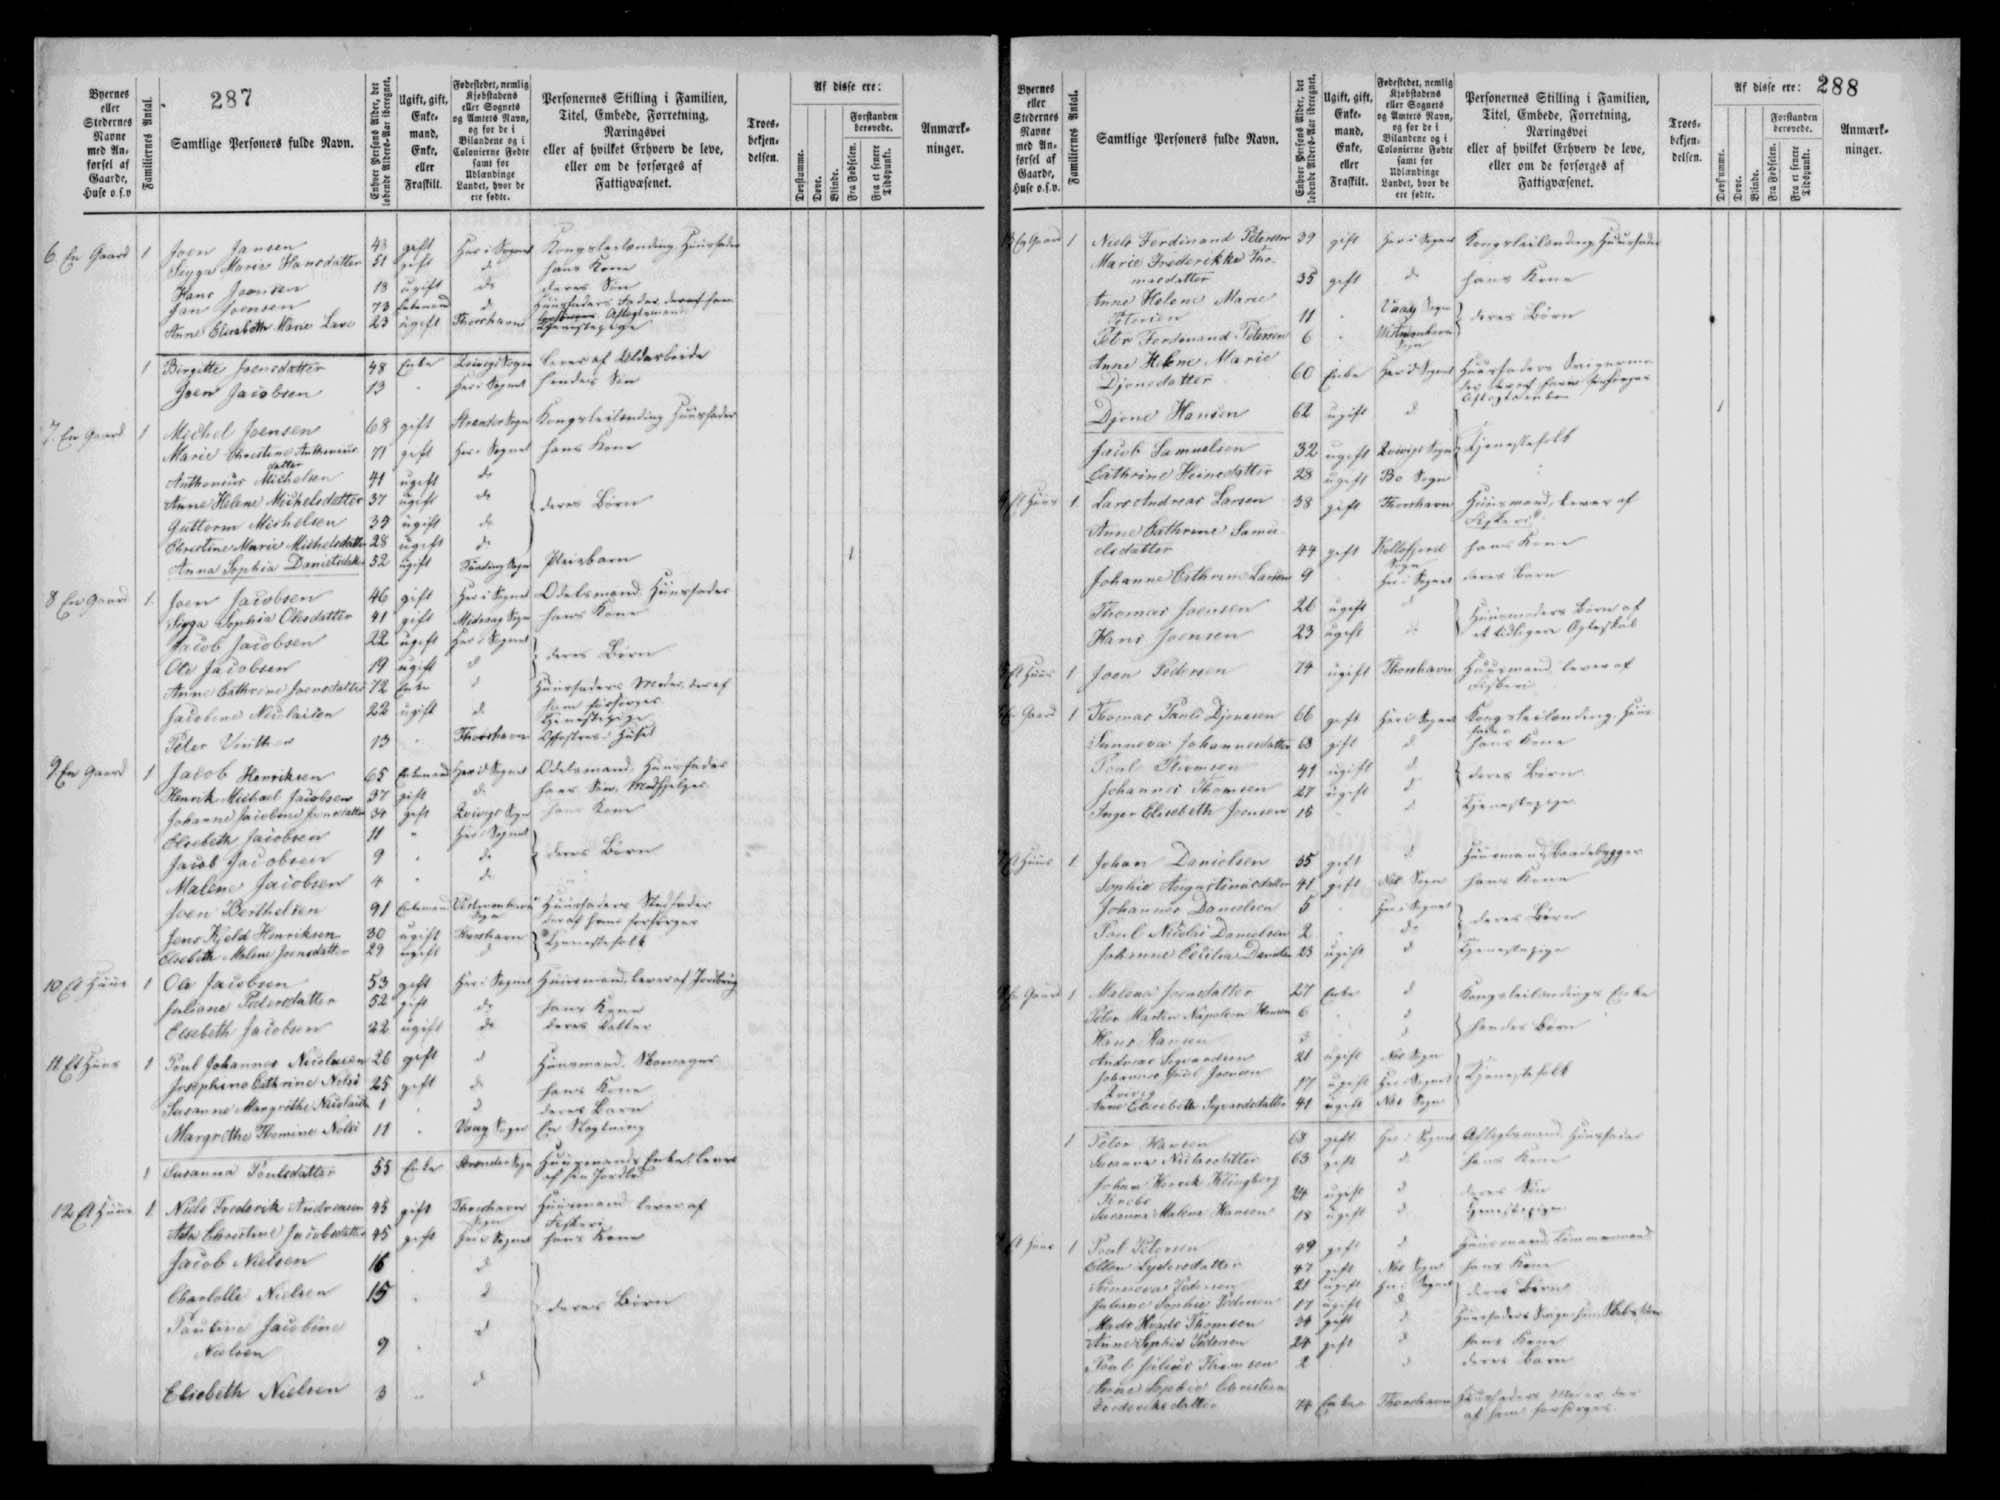 287
Byernes eller Stedernes Navne med Anførsel af Gaarde, Huse o.s.v.
Familiernes Antal.
Samtlige Personers fulde Navn.
Enhver Persons Alder, det løbende Alders-Aar iberegnet.
Ugift, gift, Enkemand, Enke, eller Fraskilt.
Fødestedet, nemlig Kjøbstadens eller Sognets og Amtets Navn, og for de i Bilandene og i Colonierne Fødte samt for Udlændinge Landet, hvor de ere fødte.
Personernes Stilling i Familien, Titel, Embede, Forretning, Næringsvei eller af hvilket Erhverv de leve, eller om de forsørges af Fattigvæsenet.
Troesbekjendelsen.
Af disse ere:
Døvstumme.
Døve.
Blinde.
Forstanden berøvede.
Fra Fødselen.
Fra et senere Tidspunkt.
Anmærkninger.
6. En Gaard 1 Joen Jansen 43 gift Her i Sognet Kongsleilænding, Huusfader
Marie Hansdatter 51 gift d hans Kone
Hans Joensen 18 ugift do deres Søn
Jan Joensen 73 Enkemand d Huusfaders Fader
Anne Elisabeth Marie 23 ugift Thorshavn Tjenestepige
1 Birgitte Joensdatter 48 Enke Sogn lever af Uldarbeide
Joen Jacobsen 13 " Her i Sognet hendes Søn
7. En Gaard 1 Michel Joensen 68 gift Sogn Kongsleilænding, Huusfader
Marie Christine datter 71 gift Her i Sognet hans Kone
Anthonius Michelsen 41 ugift do
Anne Helene Michelsdatter 37 ugift do deres Børn
Guttorm Michelsen 33 ugift do
Christine Marie Michelsdatter 28 ugift do
Anna Sophia Danielsdatter 52 ugift Sogn Pleiebarn 1
8 En Gaard 1 Joen Jacobsen 46 gift Her i Sognet Odelsmand, Huusfader
Sophia Olesdatter 41 gift Sogn hans Kone
Jacob Jacobsen 22 ugift Her i Sognet
Ole Jacobsen 19 ugift d deres Børn
Anne Cathrine Joensdatter 72 Enke d Huusfaders Moder, der af ham forsørges
Jacobine Nicolaisen 22 ugift d Tjenestepige
Peter Vinther 13 " Thorshavn Opfostres i Huset
9 En Gaard 1 Jacob Henriksen 65 Enkemand Her i Sognet Odelsmand, Huusfader
Henrik Michael Jacobsen 37 gift d hans Søn, Medhjelper
Johanne Jacobine Joensdatter 34 gift Sogn hans Kone
Elsebeth Jacobsen 11 " Her i Sognet
Jacob Jacobsen 9 " do deres Børn
Malene Jacobsen 4 " do
Joen Berthelsen 91 Enkemand Vestmanhavn Sogn Huusfaders Stedfader der af ham forsørges
Jens Kjeld Henriksen 30 ugift Thorshavn Tjenestefolk
Elsebeth Malene Joensdatter 29 ugift d
10 Et Huus 1 Ole Jacobsen 53 gift Her i Sognet Huusmand, lever af Jordbrug
Juliane Pedersdatter 52 gift do hans Kone
Elsebeth Jacobsen 22 ugift do deres Datter
11 Et Huus 1 Poul Johannes Nicolaisen 26 gift d Huusmand, Skomager
Josephine Cathrine Nolsø 25 gift d hans Kone
Susanne Margrethe Nicolaisen 1 d deres Barn
Margrethe Thomine Nolsø 11 " Vaag Sogn En Slægtning
1 Susanna Poulsdatter 55 Enke Sogn Huusmands Enke, lever af sin Jordlod
12 Et Huus 1 Niels Frederik Andreasen 45 gift Thorshavn Sogn Huusmand, lever af Fiskeri
Christine Jacobsdatter 45 gift Her i Sognet hans Kone
Jacob Nielsen 16 " d
Charlotte Nielsen 15 " d
deres Børn
Pauline Jacobine Nielsen 9 " d
Elisebeth Nielsen 3 " d
288
Byernes eller Stedernes Navne med Anførsel af Gaarde, Huse o.s.v.
Familiernes Antal.
Samtlige Personers fulde Navn.
Enhver Persons Alder, det løbende Alders-Aar iberegnet.
Ugift, gift, Enkemand, Enke, eller Fraskilt.
Fødestedet, nemlig Kjøbstadens eller Sognets og Amtets Navn, og for de i Bilandene og i Colonierne Fødte samt for Udlændinge Landet, hvor de ere fødte.
Personernes Stilling i Familien, Titel, Embede, Forretning, Næringsvei eller af hvilket Erhverv de leve, eller om de forsørges af Fattigvæsenet.
Troesbekjendelsen.
Af disse ere:
Døvstumme.
Døve.
Blinde.
Forstanden berøvede.
Fra Fødselen.
Fra et senere Tidspunkt.
Anmærkninger.
13 En Gaard 1 Niels Ferdinand Petersen 39 gift Her i Sognet Kongsleilænding, Huusfader
Marie Frederikke Thomasdatter 35 gift d hans Kone
Anne Helene Marie Petersen 11 " Vaag Sogn
deres Børn
Peter Ferdinand Petersen 6 " Vestmanhavn Sogn
Anne Helene Marie Djonesdatter 60 Enke Her i Sognet Huusfaders
Djone Hansen 62 ugift d 1
Jacob Samuelsen 32 ugift Sogn Tjenestefolk
Cathrine Heinesdatter 28 ugift Bø Sogn
Et Huus 1 Lars Andreas Larsen 38 gift Thorshavn Huusmand, lever af Fiskeri
Anne Cathrine Samuelsdatter 44 gift Kollefjord Sogn hans Kone
Johanne Cathrine Larsen 9 " Her i Sognet deres Barn
Thomas Joensen 26 ugift d Huusmoders Børn af et tidligere Ægteskab
Hans Joensen 23 ugift do
Et Huus 1 Joen Pedersen 74 ugift Thorshavn Huusmand, lever af Fiskeri
En Gaard 1 Thomas Pauli Djonesen 66 gift Her i Sognet Kongsleilænding, Huusfader
Sunneva Johannesdatter 63 gift d hans Kone
Poul Thomsen 41 ugift d deres Børn
Johannes Thomsen 27 ugift d
Inger Elisebeth Joensen 15 " d Tjenestepige
Et Huus 1 Johan Danielsen 55 gift d Huusmand, Baadebygger
Sophie Augustinusdatter 41 gift Næs Sogn hans Kone
Johannes Danielsen 5 " Her i Sognet
deres Børn
Poul Nicolai Danielsen 2 " do
Johanne Cecilia Danielsen 23 ugift d Tjenestepige
En Gaard 1 Malene Joensdatter 27 Enke d Kongsleilændings Enke
Peter Martin Napoleon Hansen 6 " d hendes Børn
Hans Hansen 3 " d
Andreas 21 ugift Næs Sogn
Johannes Poul Joensen 17 ugift Her i Sognet Tjenestefolk
Anne Elisebeth 41 ugift Næs Sogn
1 Peter Hansen 68 gift Her i Sognet Aftægtsmand, Huusfader
Susanne 63 gift d hans Kone
Johan Henrik Klingberg 24 ugift d deres Søn
Susanne Malene Hansen 18 ugift d Tjenestepige
Et Huus 1 Poul Petersen 49 gift d Huusmand, Tømmermand
Ellen 47 gift Næs Sogn hans Kone
Sunneva Pedersen 21 ugift Her i Sognet deres Børn
Juliane Sophie Pedersen 17 ugift d
Thomsen 34 gift d
Anne Sophie Pedersen 24 gift d hans Kone
Poul Julius Thomsen 2 " d deres Barn
Anne Sophie Christina Frederiksdatter 74 Enke Thorshavn Huusfaders Moder, der af ham forsørges